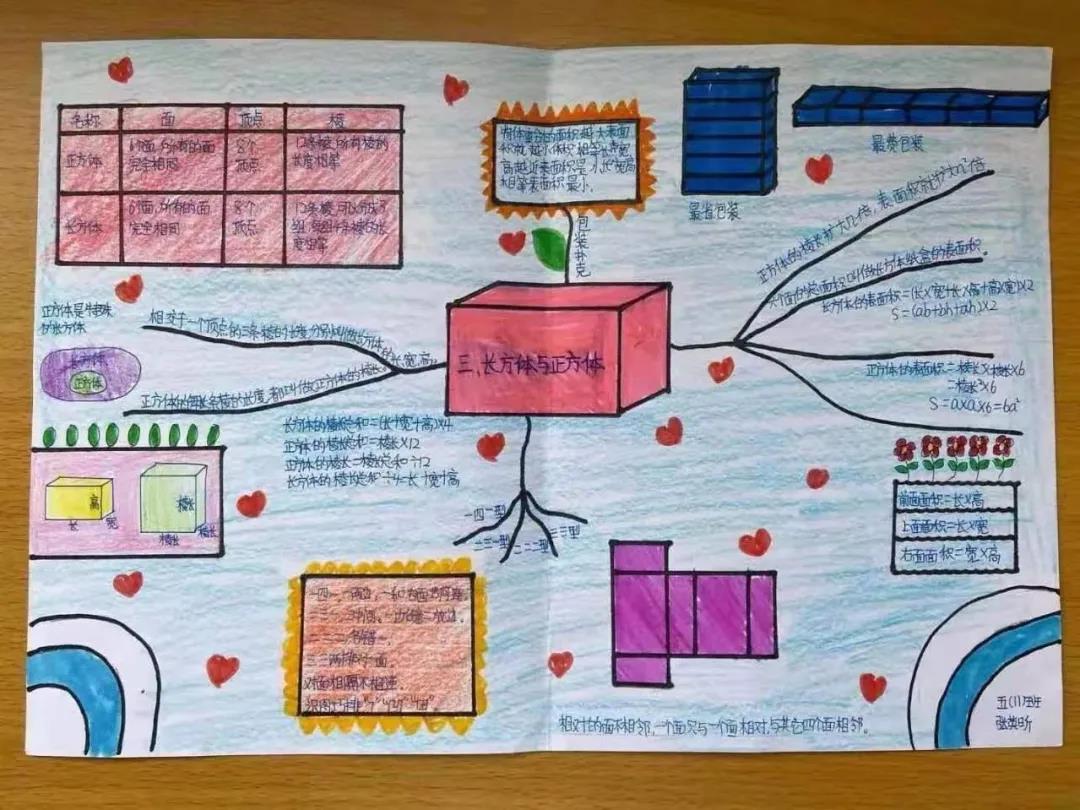 名称 面 顶点 棱
正方体 6个面,所有的面完全相同 8个顶点 12条棱,所有棱的长度相等
长方体 6个面,所有的面完全相同 8个顶点 12条棱,可以分成3组,每组4条棱的长度相等
体积 相等长宽
最省包装
最费包装
包装扑克
正方体的棱长扩大几倍,表面积就扩大几²倍
六个面的总面积叫做长方体纸盒的表面积。
长方体的表面积=(长×宽+长×高+高×宽)×2
S=(ab+bh+ah)×2
正方体的表面积=棱长×棱长×6
=棱长²×6
S=a×a×6=6a²
正方体是特殊
的长方体
长方体
正方体
相交于一个顶点的三条棱的长度分别叫做长方体的长、宽、高。
正方体的每条棱的长度,都叫做正方体的棱长。
三、长方体与正方体
长方体的棱长总和=(长+宽+高)×4
正方体的棱长总和=棱长×12
正方体的棱长=棱长总和÷12
长方体的棱长总和÷4=长+宽+高
高
长 宽
棱长
棱长 棱长
一四一型
二三一型
二二二型
三三型
前面面积=长×高
上面面积=长×宽
右面面积=宽×高
对面相隔不相连。
相对的面不相邻,一个面只与一个面相对,与其它四个面相邻。
五(1)班